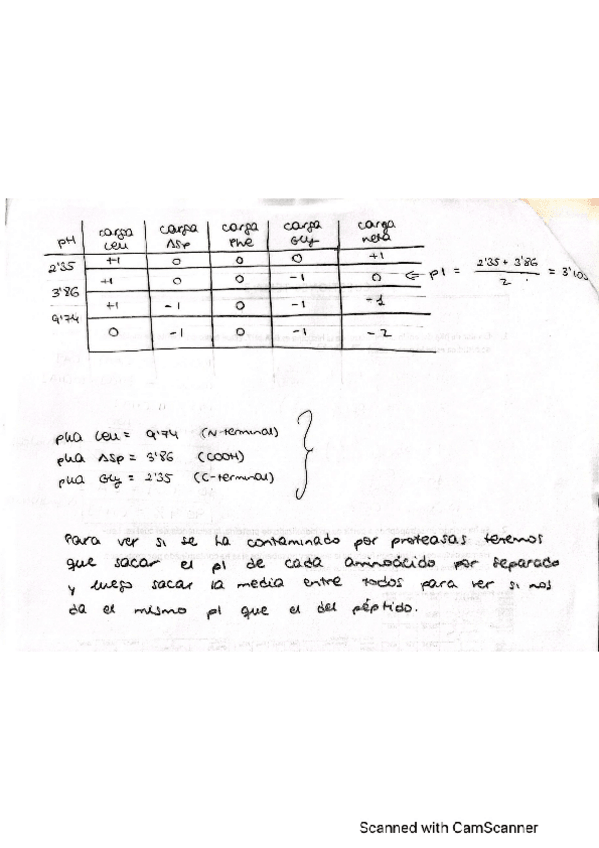 pH | carga Leu | carga Asp | carga Phe | carga Gly | carga neta
2'35 | +1 | 0 | 0 | 0 | +1
+1 | 0 | 0 | -1 | 0 ⇐ pI = (2'35 + 3'86) / 2 = 3'105
3'86
+1 | -1 | 0 | -1 | -1
9'74
0 | -1 | 0 | -1 | -2
pka Leu = 9'74 (N-terminal)
pka Asp = 3'86 (COOH)
pka Gly = 2'35 (C-terminal)
Para ver si se ha contaminado por proteasas tenemos
que sacar el pI de cada aminoácido por separado
y luego sacar la media entre todos para ver si nos
da el mismo pI que el del péptido.
Scanned with CamScanner